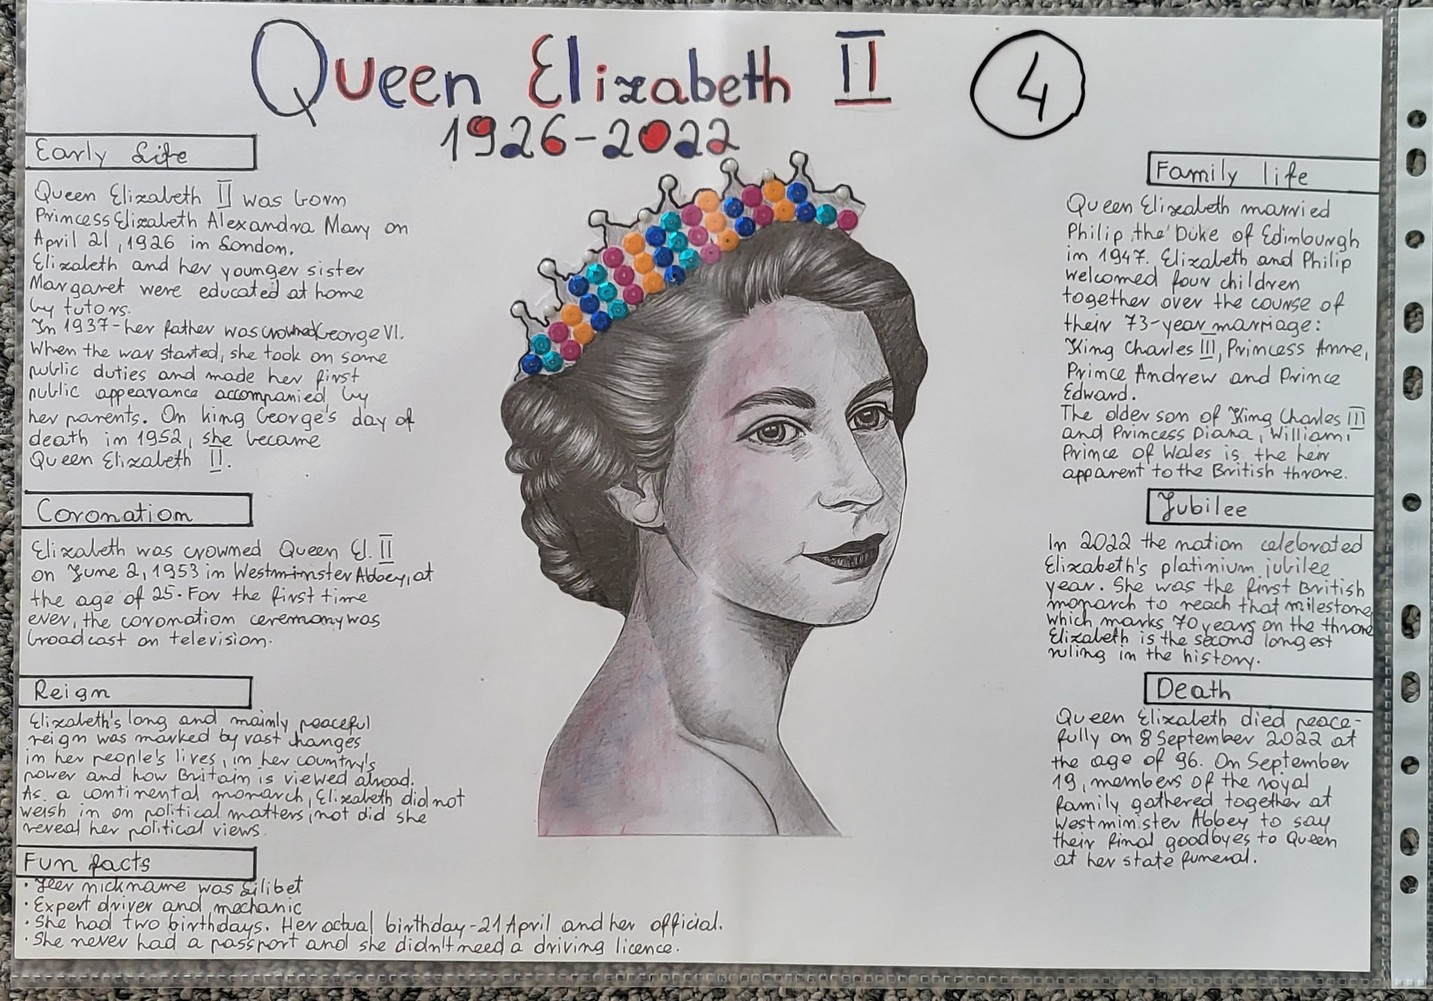 Queen Elizabeth II
1926-2022
4
Early Life
Queen Elizabeth II was born
Princess Elizabeth Alexandra Mary on
April 21, 1926 in London.
Elizabeth and her younger sister
Margaret were educated at home
by tutors.
In 1937-her father was crowned George VI.
When the war started, she took on some
public duties and made her first
public appearance accompanied by
her parents. On king George's day of
death in 1952, she became
Queen Elizabeth II.
Coronation
Elizabeth was crowned Queen El. II
on June 2, 1953 in Westminster Abbey, at
the age of 25. For the first time
ever, the coronation ceremony was
broadcast on television.
Reign
Elizabeth's long and mainly peaceful
reign was marked by vast changes
in her people's lives, in her country's
power and how Britain is viewed abroad.
As a continental monarch, Elizabeth did not
weish in on political matters, not did she
reveal her political views.
Fun facts
• Her nickname was Lilibet
• Expert driver and mechanic
• She had two birthdays. Her actual birthday-21 April and her official.
• She never had a passport and she didn't need a driving licence.
Family life
Queen Elizabeth married
Philip, the Duke of Edimburgh
in 1947. Elizabeth and Philip
welcomed four children
together over the course of
their 73-year marriage:
King Charles III, Princess Anne,
Prince Andrew and Prince
Edward.
The older son of King Charles III
and Princess Diana, William,
Prince of Wales is the heir
apparent to the British throne.
Jubilee
In 2022 the nation celebrated
Elizabeth's platinium jubilee
year. She was the first British
monarch to reach that milestone
which marks 70 years on the throne
Elizabeth is the second longest
ruling in the history.
Death
Queen Elizabeth died peace-
fully on 8 September 2022 at
the age of 96. On September
19, members of the royal
family gathered together at
Westminster Abbey to say
their final goodbyes to Queen
at her state funeral.